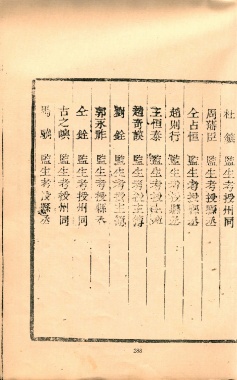 杜 鎮
周藩臣 監生考授縣丞
仝占恒 監生考授縣丞
趙則行 監生考授縣丞
王恒泰 監生考授主簿
趙奇謨 監生考授主簿
劉 銓 監生考授主簿
郭永祚 監生考授縣丞
仝 銓 監生考授州同
古之 監生考授州同
馬 監生考授縣丞
288